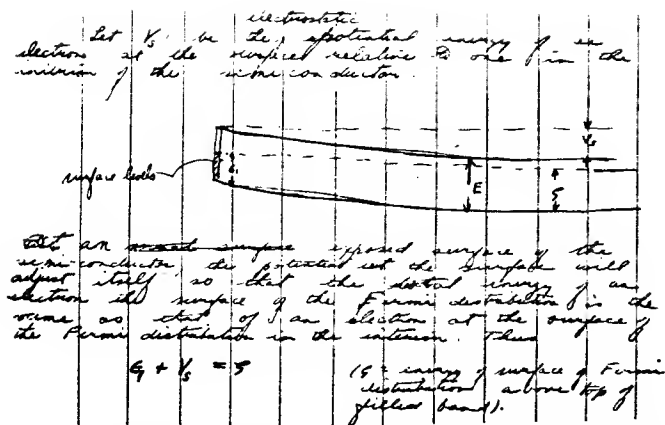 electrostatic
Let Vs be the potential energy of an
electron at the surface relative to one in the
interior of the semi-conductor.
Vs
surface levels
E
ζ
At an exposed surface of the
semi-conductor the potential at the surface will
adjust itself so that the total energy of an
electron the surface of the Fermi distribution is the
same as that of an electron at the surface of
the Fermi distribution in the interior. Thus
+ Vs = ζ
(ζ = energy of surface of Fermi
distribution above top of
filled band).